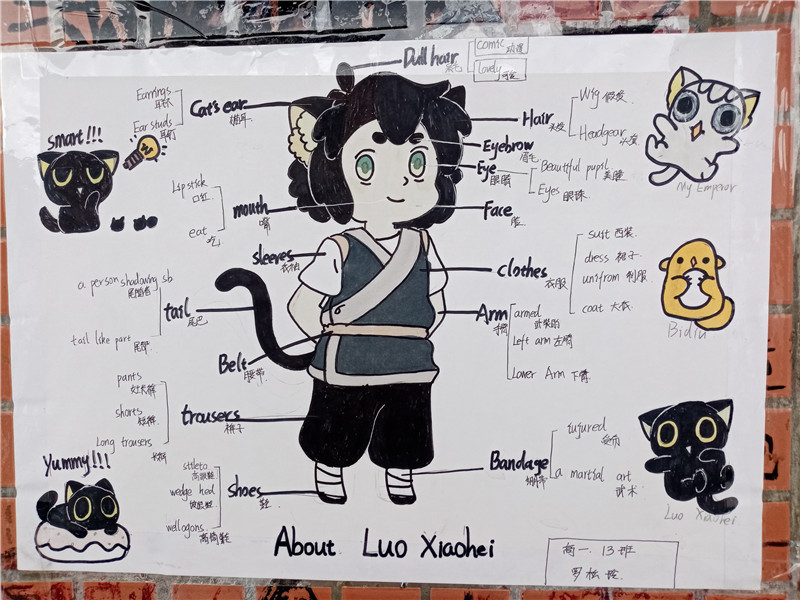 Dull hair
comic
动漫
lovely
可爱
Earrings
耳环
Ear studs
耳钉
Cat's ear
猫耳
smart!!!
Hair
头发
Wig 假发
Headgear
头盔
My Emperor
Eyebrow
眉毛
Eye
眼睛
Beautiful pupil 美瞳
Eyes 眼珠
Face
脸
Lipstick
口红
eat
吃
mouth
嘴
sleeves
衣袖
clothes
衣服
suit 西装
dress 裙子
unifrom 制服
coat 大衣
Bidiu
a person shadowing sb
tail like part
tail
尾巴
Arm
手臂
armed
Left arm 左臂
Lower Arm 下臂
Belt
腰带
pants
shorts
短裤
Long trousers
长裤
trousers
裤子
Yummy!!!
stileto
高跟鞋
wedge heel
shoes
鞋
Bandage
绷带
injured
受伤
a martial art
武术
Luo Xiaohei
About Luo Xiaohei
高一.13班